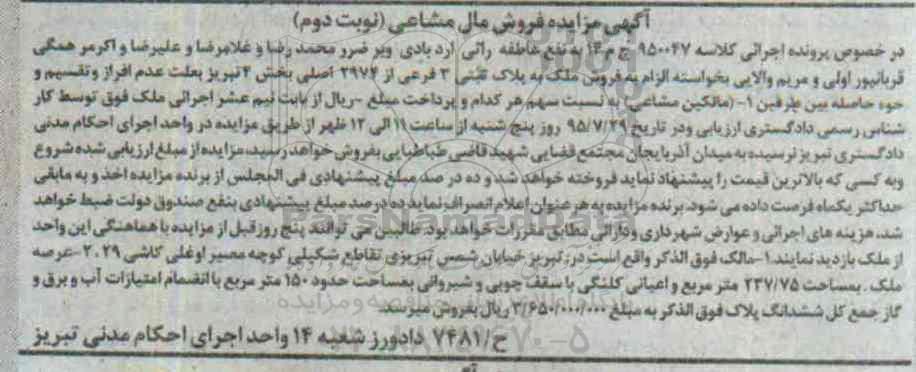 آگهی مزایده فروش مال مشاعی (نوبت دوم)
در خصوص پرونده اجرائی کلاسه ۹۵۰۰۴۷ ج م ۱۴ به نفع عاطفه رائی ارد بادی وبر ضرر محمد رضا و غلامرضا و علیرضا و اکرم همگی
قربانپور اولی و مریم والایی بخواسته الزام به فروش ملک به پلاک ثبتی ۳ فرعی از ۲۹۷۴ اصلی بخش ۴ تبریز بعلت عدم افراز وتقسیم و
حوه حاصله بین طرفین ۱- (مالکین مشاعی) به نسبت سهم هر کدام و پرداخت مبلغ -ریال از بابت نیم عشر اجرائی ملک فوق توسط کار
شناس رسمی دادگستری ارزیابی ودر تاریخ ۹۵/۷/۲۹ روز پنج شنبه از ساعت ۱۱ الی ۱۲ ظهر از طریق مزایده در واحد اجرای احکام مدنی
دادگستری تبریز نرسیده به میدان آذربایجان مجتمع قضایی شهید قاضی طباطبایی بفروش خواهد رسید، مزایده از مبلغ ارزیابی شده شروع
وبه کسی که بالاترین قیمت را پیشنهاد نماید فروخته خواهد شد و ده در صد مبلغ پیشنهادی فی المجلس از برنده مزایده اخذ و به مابقی
حداکثر یکماه فرصت داده می شود، برنده مزایده به هر عنوان اعلام انصراف نماید ده در صد مبلغ پیشنهادی بنفع صندوق دولت ضبط خواهد
شد، هزینه های اجرائی و عوارض شهرداری ودارائی مطابق مقررات خواهد بود. طالبین می توانند پنج روز قبل از مزایده با هماهنگی این واحد
از ملک بازدید نمایند. ۱-مالک فوق الذکر واقع است در: تبریز خیابان شمس تبریزی تقاطع شکیلی کوچه ممیر اوغلی کاشی ۲۹. ۲-عرصه
ملک . بمساحت ۲۳۷/۷۵ متر مربع و اعیانی کلنگی با سقف چوبی و شیروانی بمساحت حدود ۱۵۰ متر مربع با انضمام امتیازات آب و برق و
گاز جمع کل ششدانگ پلاک فوق الذکر به مبلغ ۳/۶۵۰/۰۰۰/۰۰۰ ریال بفروش میرسد.
ح/۷۴۸۱ دادورز شعبه ۱۴ واحد اجرای احکام مدنی تبریز
ParsNamadData